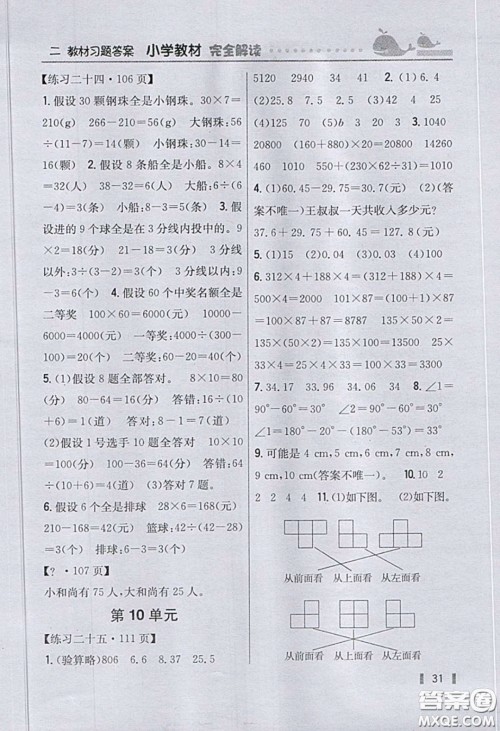 二 教材习题答案 小学教材 完全解读
【练习二十四·106页】
1. 假设30颗钢珠全是小钢珠。30×7=
210(g) 266-210=56(g) 大钢珠:56
÷(11-7)=14(颗) 小钢珠:30-14=
16(颗) 2. 假设8条船全是小船。8×4
=32(人) 38-32=6(人) 大船:6÷(6-
4)=3(条) 小船:8-3=5(条) 3. 假设
进的9个球全是在3分线内投中的。9
×2=18(分) 21-18=3(分) 3分线
以外:3÷(3-2)=3(个) 3分线以内:
9-3=6(个) 4. 假设60个中奖名额全是
二等奖 100×60=6000(元) 10000-
6000=4000(元) 一等奖:4000÷(300-
100)=20(个) 二等奖:60-20=40(个)
5. (1)假设8题全部答对。 8×10=80
(分) 80-64=16(分) 答错:16÷(10
+6)=1(道) 答对:8-1=7(道)
(2)假设1号选手10题全答对 10×10
=100(分) 100-36=64(分) 答错:
64÷(10+6)=4(道) (3)答对7题。
6. 假设6个全是排球 28×6=168(元)
210-168=42(元) 篮球:42÷(42-28)
=3(个) 排球:6-3=3(个)
【?·107页】
小和尚有75人,大和尚有25人。
第10单元
【练习二十五·111页】
1. (验算略)806 6.6 8.37 25.5
5120 2940 34 41 2. (1)6.4
(2)0.25 (3)8.4 3. 10 40 1040
20800 (10+30)×(230+290)=
20800 16 22 352 14310 (38-
22)×(230÷10-1)=352 14310
4. (1)60.45-29.75=30.7(元) (2)(答
案不唯一)王叔叔一天共收入多少元?
37.6+29.75+60.45=127.8(元)
5. (1)0.25 (2)0.16 (3)0.06
6. 312×4+188×4=(312+188)×4=
500×4=2000 101×87=100×87+
1×87=8700+87=8787 150×4÷150
×4=150÷150×4×4=16 25×33
×4=25×4×33=100×33=3300
7. 34.17 34.96 34.06 8. ∠1=
90°-60°=30° ∠2=90°-∠1=90°-30°
=60° ∠1=180°-20°-25°=135°
9. 可能是4 cm,5 cm,6 cm,7 cm,8 cm,
9 cm,10 cm(答案不唯一)。 10. 10 2
2 2 4 4 11. (1)如下图。 (2)如下图。
从前面看 从上面看 从左面看
从前面看 从上面看 从左面看
31
答案圈
MXQE.COM